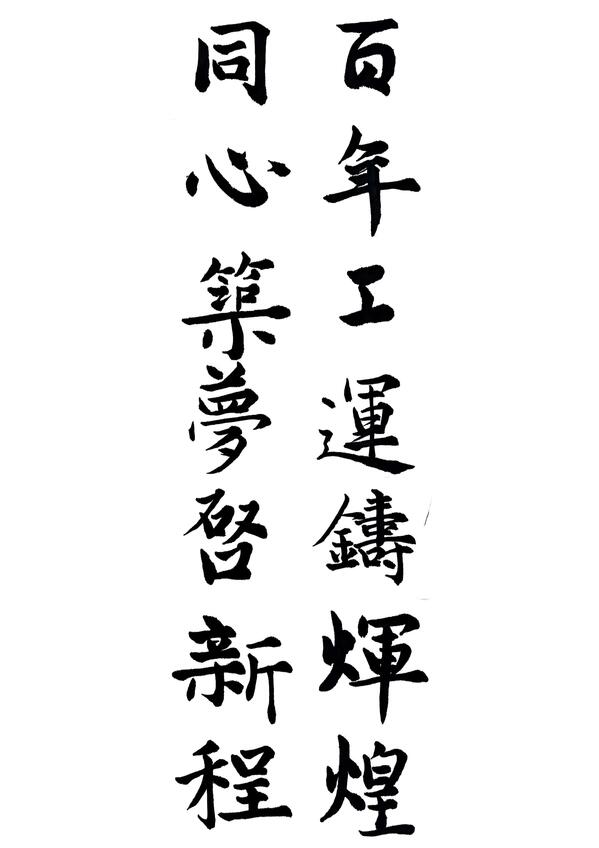 百年工運鑄輝煌
同心築夢啓新程